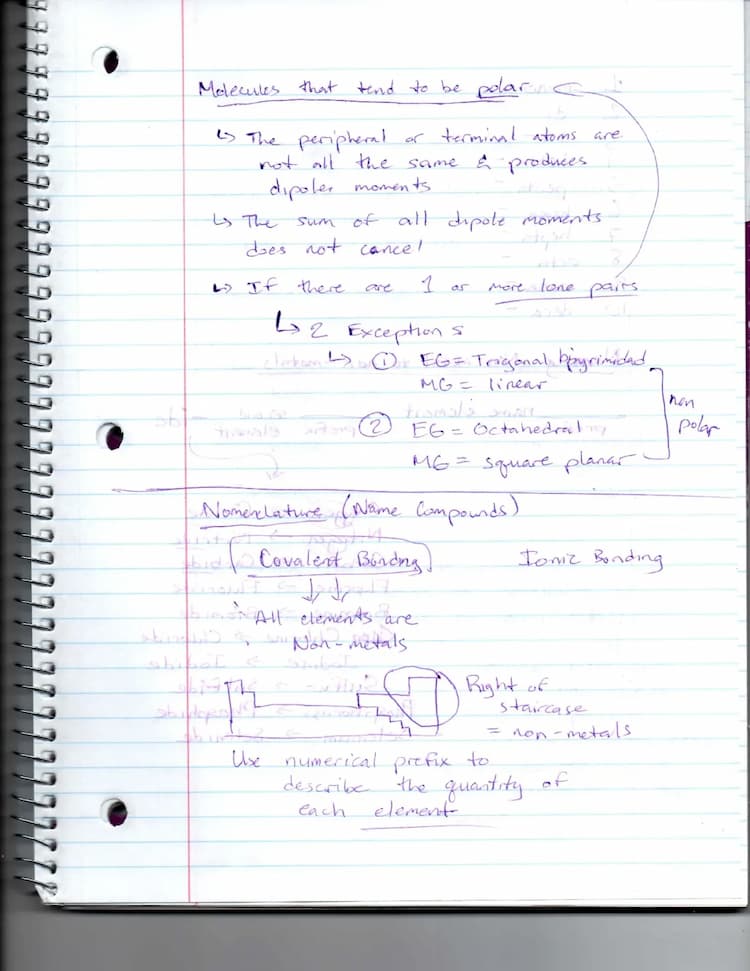 Molecules that tend to be polar
↳ The peripheral or terminal atoms are
not all the same & produces
dipoler moments
↳ The sum of all dipole moments
does not cancel
↳ If there are 1 or more lone pairs
↳ 2 Exceptions
↳ ① EG = Trigonal bipyrimidad
MG = linear
② EG = Octahedral
MG = square planar
non
polar
Nomenclature (Name Compounds)
Covalent Bonding
Ionic Bonding
All elements are
Non-metals
Right of
staircase
= non-metals
Use numerical prefix to
describe the quantity of
each element